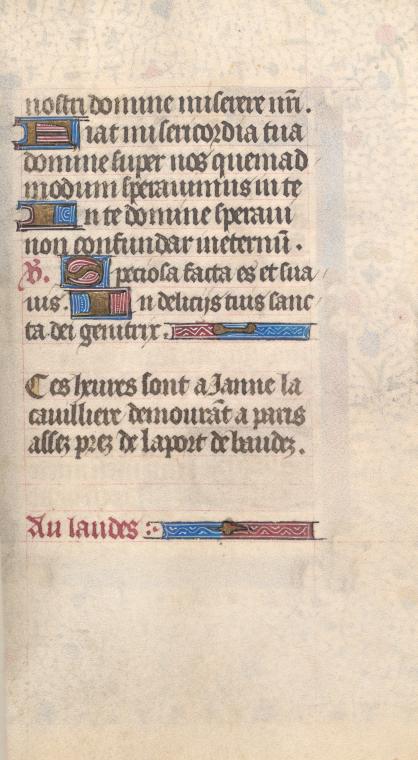 nostri domine miserere nr̄i.
Fiat misericordia tua
domine super nos quemad
modum sperauimus in te
In te domine speraui
non confundar ineternū.
V. Speciosa facta es et sua
uis. In delicijs tuis sanc
ta dei genitrix.
Ces heures sont a Janne la
cauilliere demourāt a paris
assez prez de laport de baudez.
Au laudes :